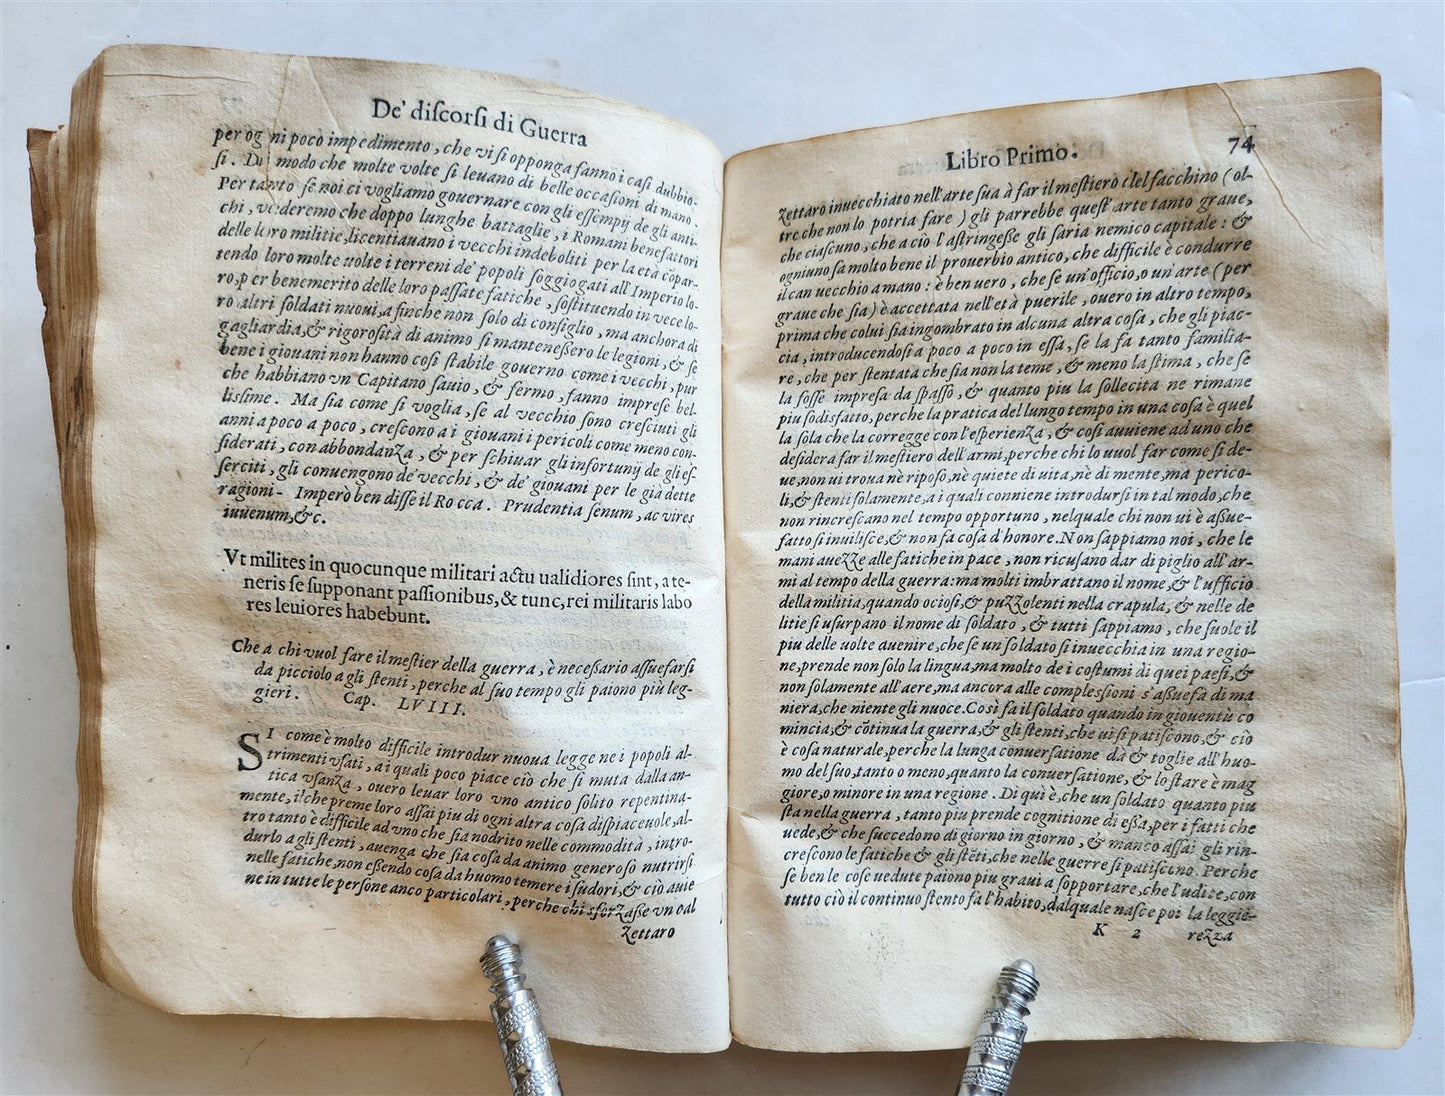 De' diſcorſi di Guerra
per og ni poco impedimento, che vi ſi opponga fanno i caſi dubbio-
ſi. Di modo che molte volte ſi leuano di belle occaſioni di mano.
Per tanto ſe noi ci vogliamo gouernare con gli eſſempij de gli anti-
chi, vederemo che doppo lunghe battaglie, i Romani benefattori
delle loro militie, licentiauano i vecchi indeboliti per la età cōpar-
tendo loro molte uolte i terreni de' popoli ſoggiogati all'Imperio lo-
ro, per benemerito delle loro paſſate fatiche, ſoſtituendo in vece lo-
ro altri ſoldati nuoui, a finche non ſolo di conſiglio, ma anchora di
gagliardia, & rigoroſità di animo ſi manteneßero le legioni, & ſe
bene i giouani non hanno coſi ſtabile gouerno come i vecchi, pur
che habbiano vn Capitano ſauio, & fermo, fanno impreſe bel-
liſſime. Ma ſia come ſi voglia, ſe al vecchio ſono creſciuti gli
anni a poco a poco, creſcono a i giouani i pericoli come meno con-
ſiderati, con abbondanza, & per ſchiuar gli infortunij de gli eſ-
ſerciti, gli conuengono de' vecchi, & de' giouani per le già dette
ragioni- Imperò ben diſſe il Rocca. Prudentia ſenum, ac vires
iuuenum, &c.
Vt milites in quocunque militari actu ualidiores ſint, a te-
neris ſe ſupponant paſſionibus, & tunc, rei militaris labo
res leuiores habebunt.
Che a chi vuol fare il meſtier della guerra, è neceßario aſſuefarſi
da picciolo a gli ſtenti, perche al ſuo tempo gli paiono più leg-
gieri. Cap. LVIII.
SI come è molto difficile introdur nuoua legge ne i popoli al-
trimenti vſati, a i quali poco piace ciò che ſi muta dalla an-
tica vſanza, ouero leuar loro vno antico ſolito repentina-
mente, il che preme loro aſſai piu di ogni altra coſa diſpiaceuole, al-
tro tanto è difficile ad vno che ſia nodrito nelle commodità, intro-
durlo a gli ſtenti, auenga che ſia coſa da animo generoſo nutrirſi
nelle fatiche, non eſſendo coſa da huomo temere i ſudori, & ciò auie
ne in tutte le perſone anco particolari, perche chi sforzaſſe vn cal
zettaro
Libro Primo. 74
zettaro inuecchiato nell'arte ſua à far il meſtiero del facchino (ol-
tre che non lo potria fare) gli parrebbe queſt'arte tanto graue,
che ciaſcuno, che a ciò l'aſtringeße gli ſaria nemico capitale: &
ogniuno ſa molto bene il prouerbio antico, che difficile è condurre
il can uecchio a mano: è ben uero, che ſe un'officio, o un'arte (per
graue che ſia) è accettata nell'età puerile, ouero in altro tempo,
prima che colui ſia ingombrato in alcuna altra coſa, che gli piac-
cia, introducendoſi a poco a poco in eſſa, ſe la fa tanto familia-
re, che per ſtentata che ſia non la teme, & meno la ſtima, che ſe
la foſſe impreſa da ſpaſſo, & quanto piu la ſollecita ne rimane
piu ſodisfatto, perche la pratica del lungo tempo in una coſa è quel
la ſola che la corregge con l'eſperienza, & coſi auuiene ad uno che
deſidera far il meſtiero dell'armi, perche chi lo uuol far come ſi de-
ue, non ui troua nè ripoſo, nè quiete di uita, nè di mente, ma perico-
li, & ſtenti ſolamente, a i quali conuiene introdurſi in tal modo, che
non rincreſcano nel tempo opportuno, nel quale chi non ui è aßue-
fatto ſi inuiliſce, & non fa coſa d'honore. Non ſappiamo noi, che le
mani auezze alle fatiche in pace, non ricuſano dar di piglio all'ar-
mi al tempo della guerra: ma molti imbrattano il nome, & l'ufficio
della militia, quando ocioſi, & puzzolenti nella crapula, & nelle de
litie ſi uſurpano il nome di ſoldato, & tutti ſappiamo, che ſuole il
piu delle uolte auenire, che ſe un ſoldato ſi inuecchia in una regio-
ne, prende non ſolo la lingua, ma molto de i coſtumi di quei paeſi, &
non ſolamente all'aere, ma ancora alle compleſſioni s'aßuefa di ma
niera, che niente gli nuoce. Così fa il ſoldato quando in giouentù co
mincia, & cōtinua la guerra, & gli ſtenti, che ui ſi patiſcono, & ciò
è coſa naturale, perche la lunga conuerſatione dà & toglie all'huo-
mo del ſuo, tanto o meno, quanto la conuerſatione, & lo ſtare è mag
giore, o minore in una regione. Di quì è, che un ſoldato quanto piu
ſta nella guerra, tanto piu prende cognitione di eßa, per i fatti che
uede, & che ſuccedono di giorno in giorno, & manco aſſai gli rin-
creſcono le fatiche & gli ſtēti, che nelle guerre ſi patiſcono. Perche
ſe ben le coſe uedute paiono piu graui a ſopportare, che l'udite, con
tutto ciò il continuo ſtento fa l'habito, dal quale naſce poi la leggie-
K 2 rezza